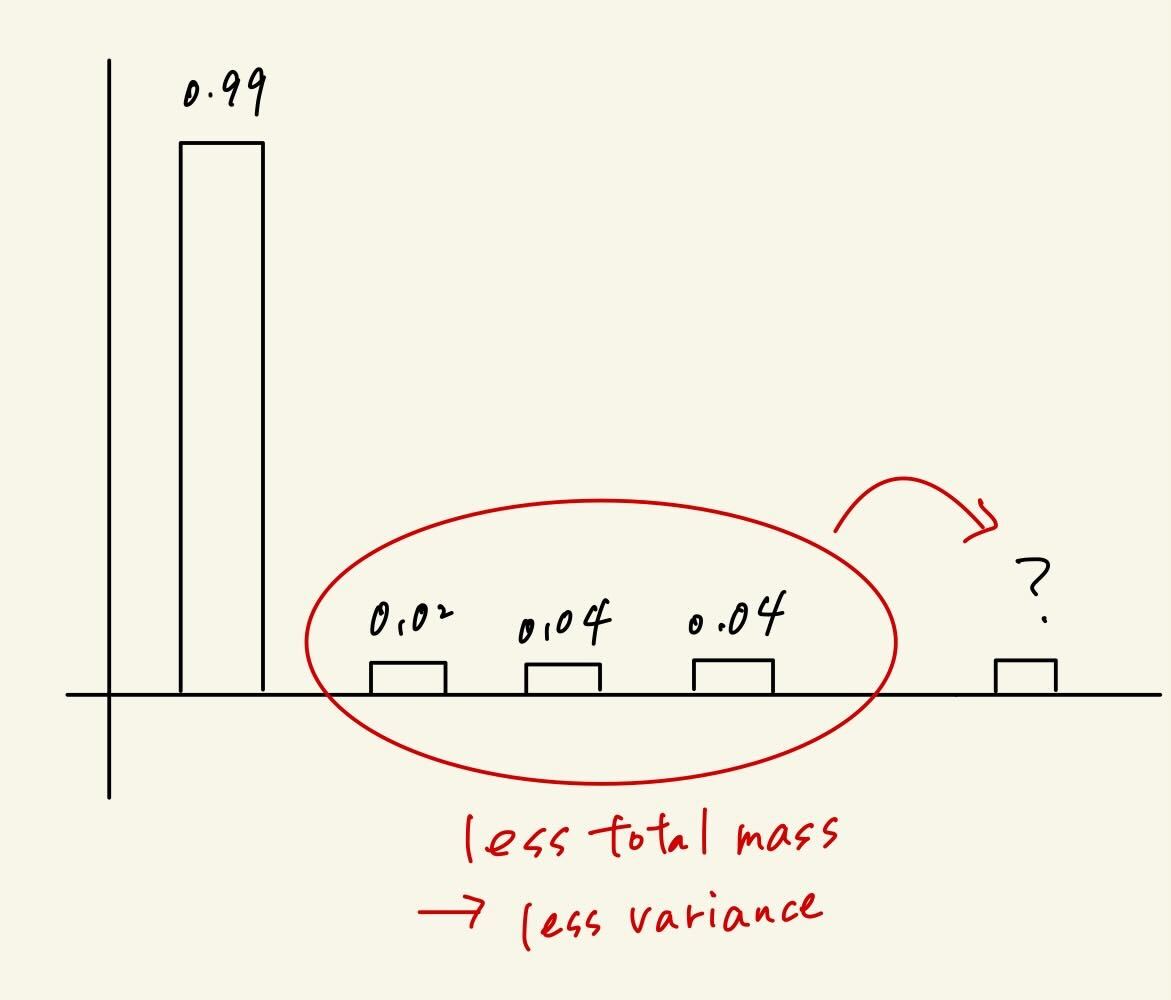 0.99
0.02 0.04 0.04 ?
less total mass
→ less variance